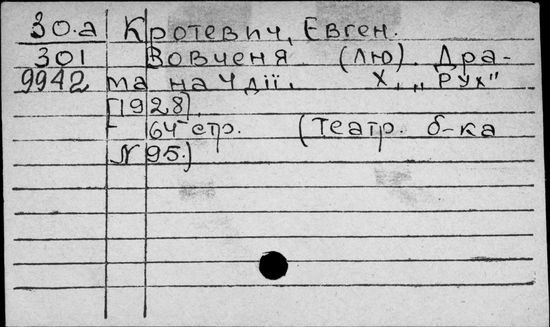 30.а Кротевич, Євген.
301 Вовченя (Лю). Дра-
9942 ма на 4 дії. Х., „РУХ"
[1928].
64 стр. (Театр. б-ка
N 95.)